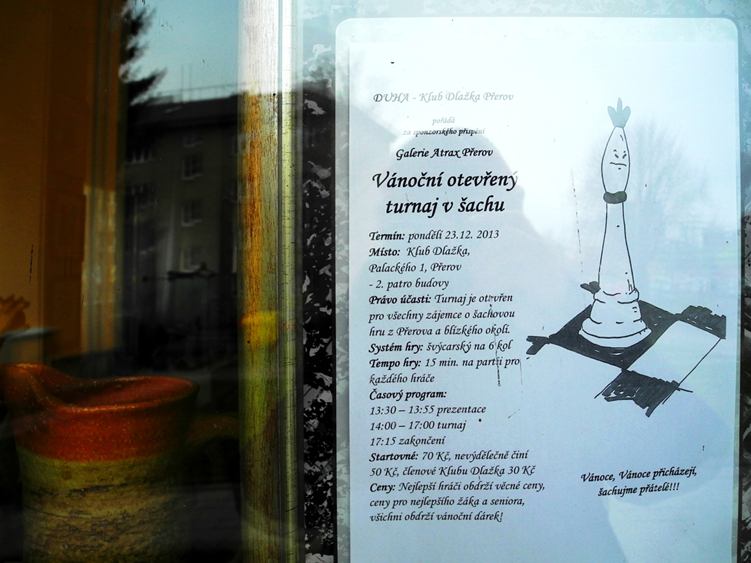 DUHA - Klub Dlažka Přerov
pořádá
za sponzorského přispění
Galerie Atrax Přerov
Vánoční otevřený
turnaj v šachu
Termín: pondělí 23.12. 2013
Místo: Klub Dlažka,
Palackého 1, Přerov
- 2. patro budovy
Právo účasti: Turnaj je otevřen
pro všechny zájemce o šachovou
hru z Přerova a blízkého okolí.
Systém hry: švýcarský na 6 kol
Tempo hry: 15 min. na partii pro
každého hráče
Časový program:
13:30 – 13:55 prezentace
14:00 – 17:00 turnaj
17:15 zakončení
Startovné: 70 Kč, nevýdělečně činí
50 Kč, členové Klubu Dlažka 30 Kč
Ceny: Nejlepší hráči obdrží věcné ceny,
ceny pro nejlepšího žáka a seniora,
všichni obdrží vánoční dárek!
Vánoce, Vánoce přicházejí,
šachujme přátelé!!!